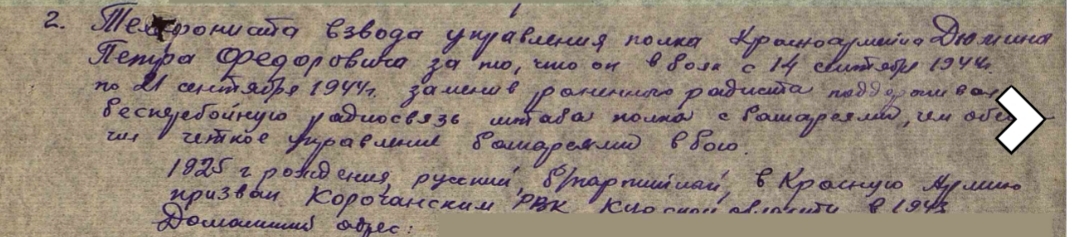 2. Телефониста взвода управления полка Красноармейца Дюмина
Петра Федоровича за то, что он в боях с 14 сентября 1944г.
по 21 сентября 1944г. заменив раненного радиста поддерживал
бесперебойную радиосвязь штаба полка с батареями, чем
четкое управление батареями в бою.
1925 г рождения, русский, б/партийный, в Красную Армию
призван Корочанским РВК Курской области в 1943
Домашний адрес: